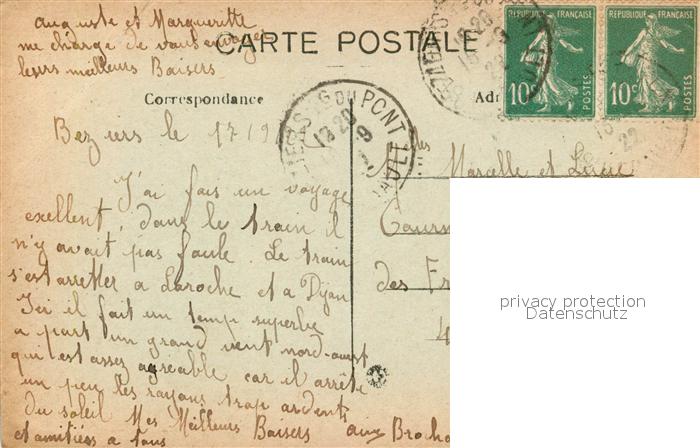 auguste et Margueritte
me charge de vous envoyer
leurs meilleurs Baisers
CARTE POSTALE
RÉPUBLIQUE FRANÇAISE
10c
POSTES
RÉPUBLIQUE FRANÇAISE
10c
POSTES
Correspondance
Beziers le 17 19
J'ai fais un voyage
exellent, dans le train il
n'y avait pas foule. Le train
s'est arretter a Laroche et a Dijon
Ici il fait un temp superbe
a part un grand vent nord-ouest
qui est assez agreable car il arrête
un peu les rayons trop ardents
du soleil Mes Meilleurs Baisers aux
et amitiées a tous
Marcelle et Lucie
des Fr
4
privacy protection
Datenschutz